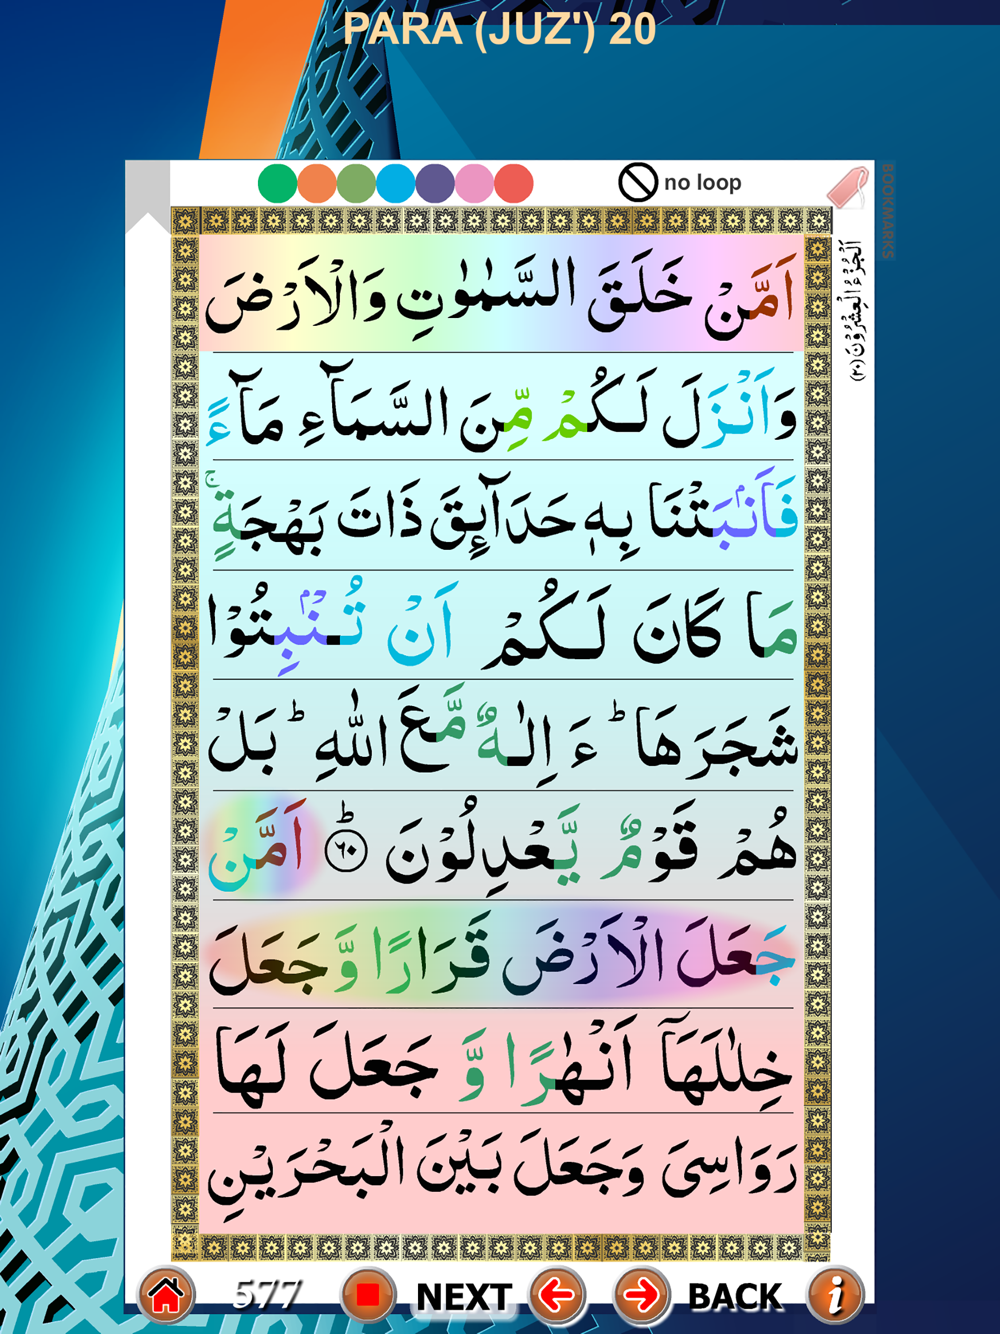 PARA (JUZ') 20
no loop
BOOKMARKS
اَلْجُزْءُ الْعِشْرُوْنَ (۲۰)
اَمَّنْ خَلَقَ السَّمٰوٰتِ وَالْاَرْضَ
وَاَنْزَلَ لَـكُمْ مِّنَ السَّمَآءِ مَآءً
فَاَنْۢبَتْنَا بِهٖ حَدَآئِقَ ذَاتَ بَهْجَةٍ ۚ
مَا كَانَ لَـكُمْ اَنْ تُـنْۢبِتُوْا
شَجَرَهَا ؕ ءَ اِلٰـهٌ مَّعَ اللّٰهِ ؕ بَلْ
هُمْ قَوْمٌ يَّعْدِلُوْنَ ؕ ﴿۶۰﴾ اَمَّنْ
جَعَلَ الْاَرْضَ قَرَارًا وَّ جَعَلَ
خِلٰلَهَاۤ اَنْهٰرًا وَّ جَعَلَ لَهَا
رَوَاسِىَ وَجَعَلَ بَيْنَ الْبَحْرَيْنِ
577 NEXT BACK i